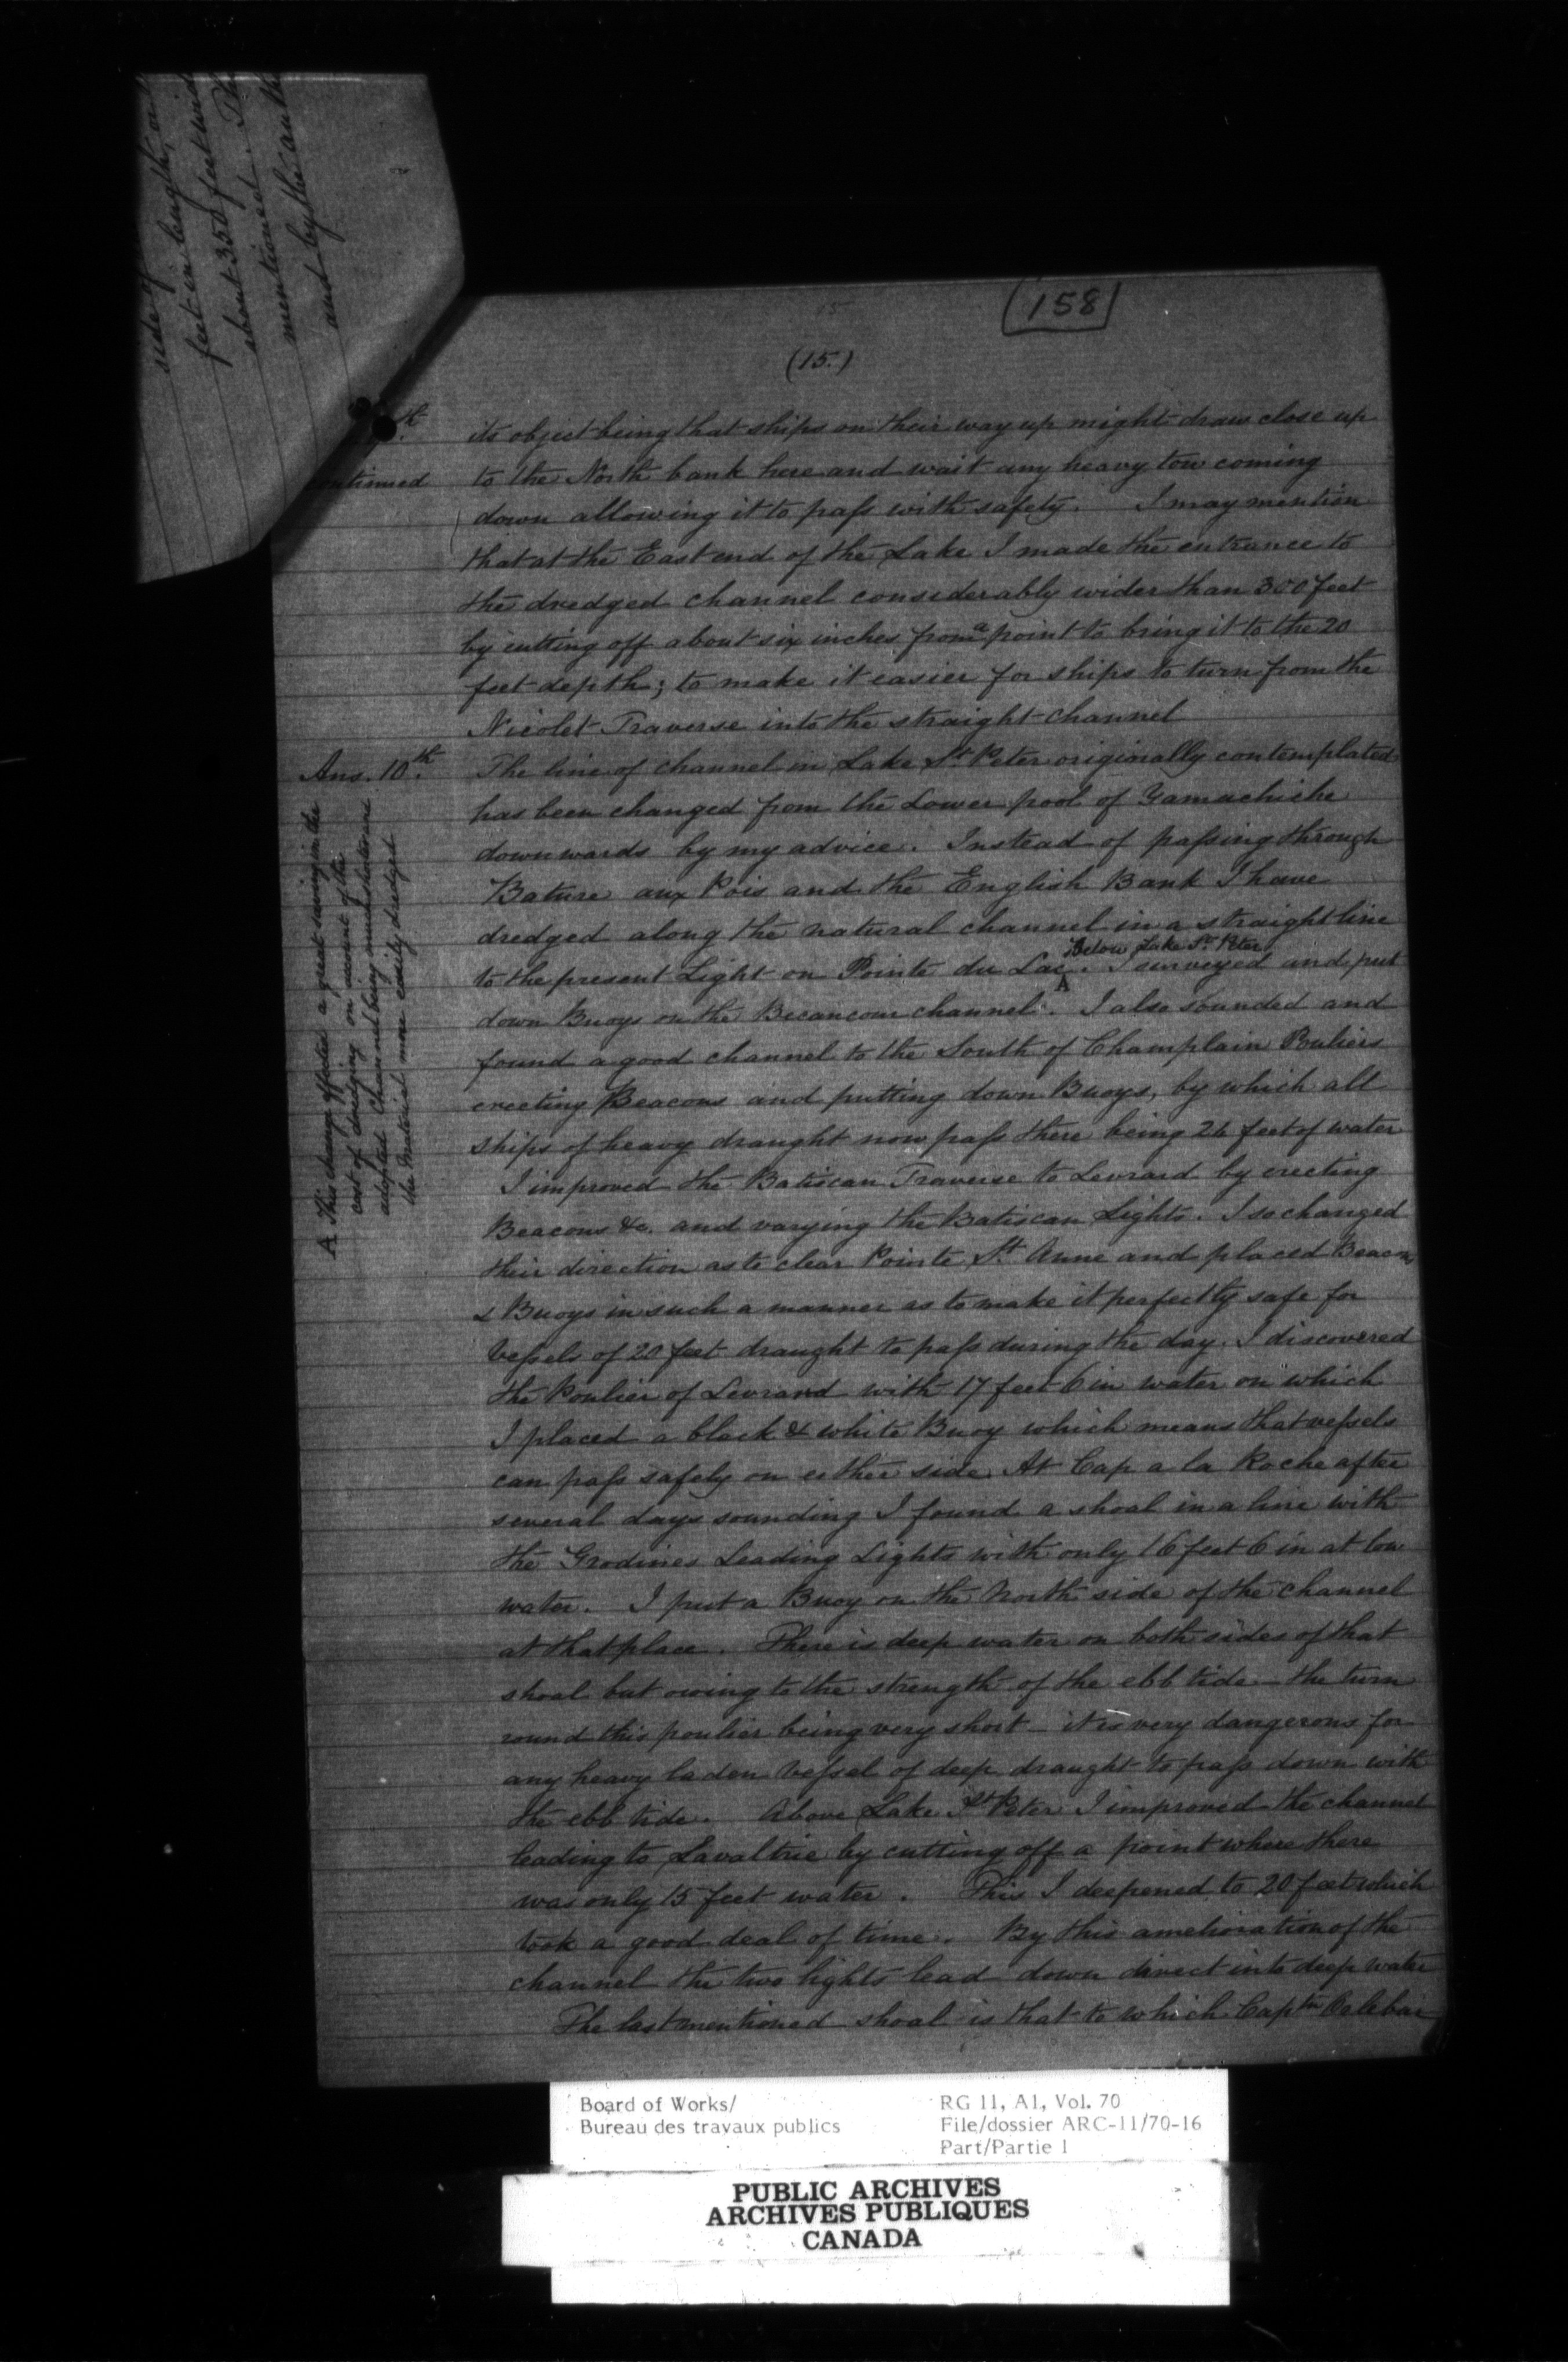 side of
feet in length, and
feet wide
about 350 feet
mentioned. Th
mentioned in the
and by the
158
15
(15.)
th.
continued
its object being that ships on their way up might draw close up
to the North bank here and wait any heavy tow coming
down allowing it to pass with safety. I may mention
that at the East end of the Lake I made the entrance to
the dredged channel considerably wider than 300 feet
by cutting off about six inches from a point to bring it to the 20
feet depth; to make it easier for ships to turn from the
Nicolet Traverse into the straight channel
Ans. 10th.
The line of channel in Lake St. Peter originally contemplated
has been changed from the Lower pool of Yamachiche
downwards by my advice. Instead of passing through
Bature aux Pois and the English Bank I have
dredged along the natural channel in a straight line
Below Lake St. Peter
to the present Light on Pointe du Lac. A I surveyed and put
down Buoys on the Becancour channel. I also sounded and
found a good channel to the South of Champlain Pouliers
erecting Beacons and putting down Buoys, by which all
ships of heavy draught now pass there being 24 feet of water
I improved the Batiscan Traverse to Levrard by erecting
Beacons &c. and varying the Batiscan Lights. I so changed
their direction as to clear Pointe St. Anne and placed Beacons
& Buoys in such a manner as to make it perfectly safe for
Vessels of 20 feet draught to pass during the day. I discovered
the Poulier of Levrard with 17 feet 6 in water on which
I placed a black & white Buoy which means that vessels
can pass safely on either side. At Cap a la Roche after
several days sounding I found a shoal in a line with
the Grodines Leading Lights with only 16 feet 6 in at low
water. I put a Buoy on the North side of the channel
at that place. There is deep water on both sides of that
shoal but owing to the strength of the ebb tide - the turn
round this poulier being very short - it is very dangerous for
any heavy laden Vessel of deep draught to pass down with
the ebb tide. Above Lake St Peter I improved the channel
leading to Lavaltrie by cutting off a point where there
was only 15 feet water. This I deepened to 20 feet which
took a good deal of time. By this amelioration of the
channel the two lights lead down direct into deep water
The last mentioned shoal is that to which Captn Orlebar
A This change effected a great saving in the
cost of dredging on account of the
adopted Channel being much shorter and
the Material more easily dredged
Board of Works/
Bureau des travaux publics
RG 11, A1, Vol. 70
File/dossier ARC-11/70-16
Part/Partie 1
PUBLIC ARCHIVES
ARCHIVES PUBLIQUES
CANADA